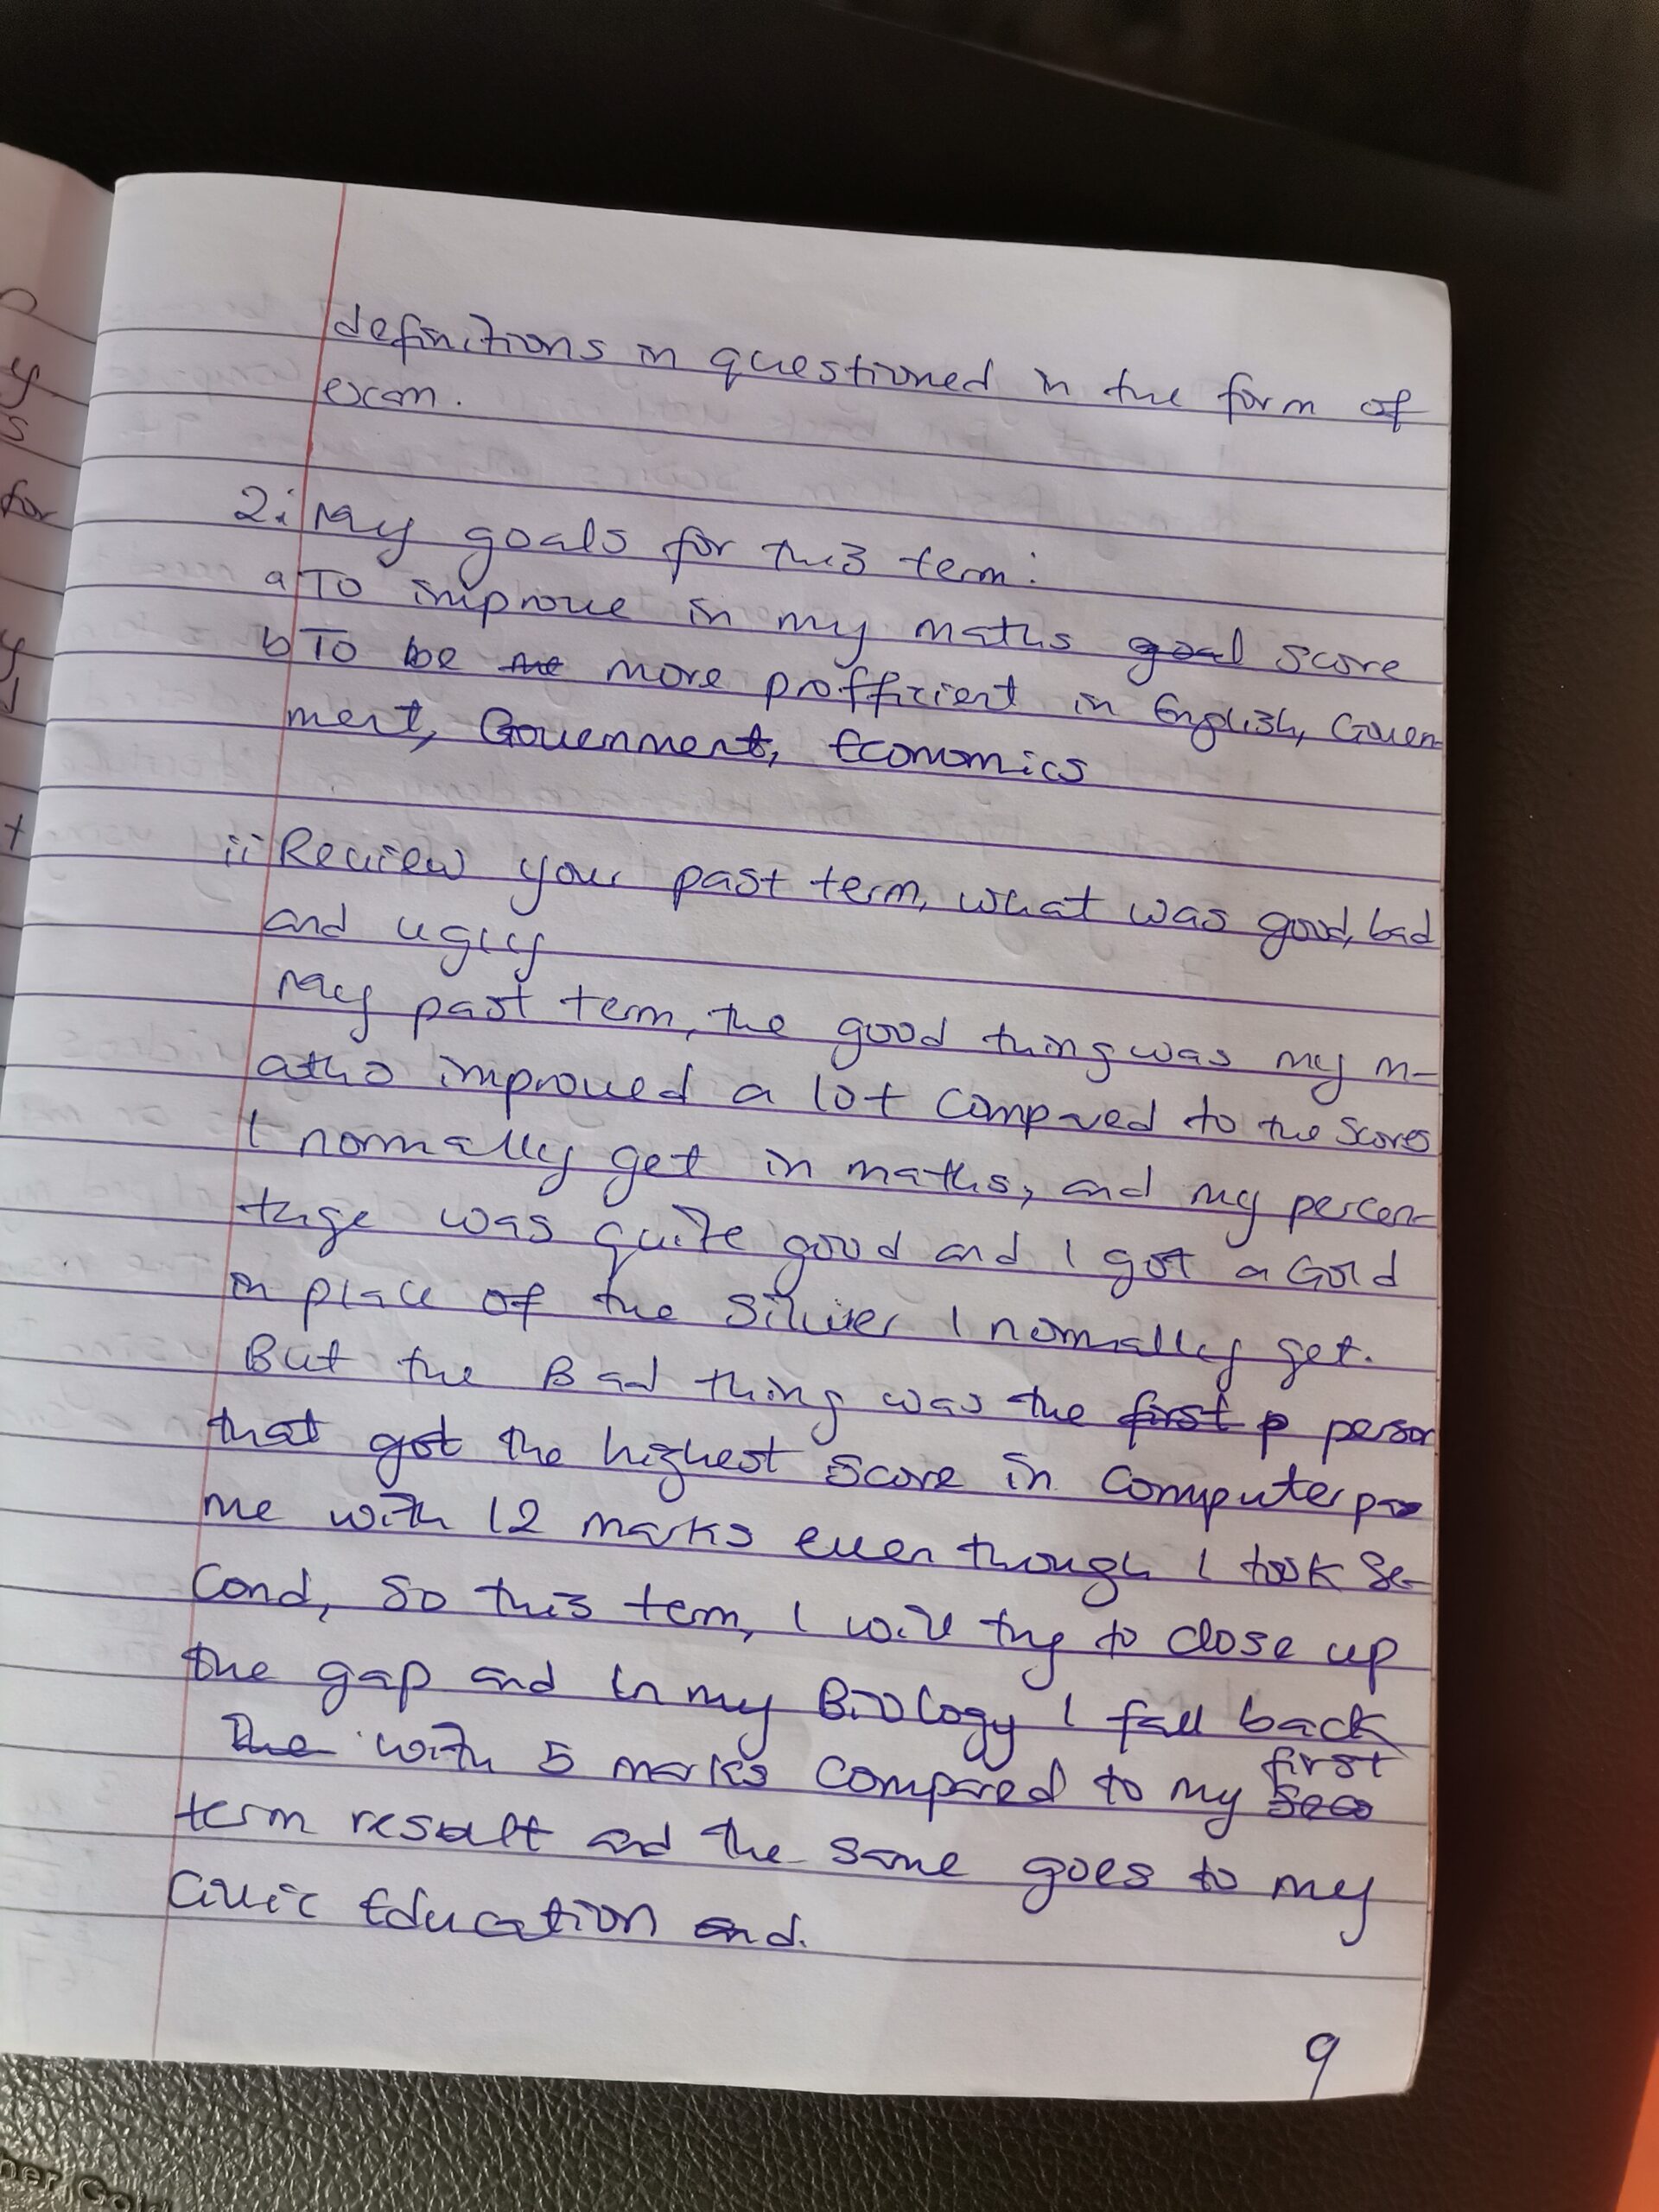 definitions in questioned in the form of
exam.
2i My goals for this term:
a To improve in my maths goal score
b To be me more profficient in English, Goven-
ment, Government, Economics
ii Review your past term, what was good, bad
and ugly
My past term, the good thing was my m-
aths improved a lot compared to the scores
I normally get in maths, and my percen-
tage was quite good and I got a Gold
in place of the Silver I normally get.
But the Bad thing was the first p person
that got the highest score in Computer
me with 12 marks even though I took Se-
cond, So this term, I will try to close up
the gap and in my Biology I fall back
The with 5 marks compared to my first
term result and the same goes to my
Civic Education and.
9
for
y
s
y
t